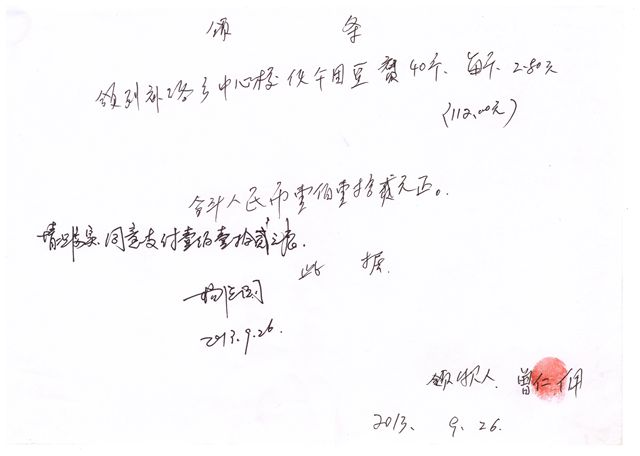 领 条
领到补珞乡中心校伙午用豆 40斤、每斤 2.80元
(112.00元)
合计人民币壹佰壹拾贰元正。
情况属实.同意支付壹佰壹拾贰元.
此 据.
2013.9.26.
领款人 曾仁
2013. 9. 26.